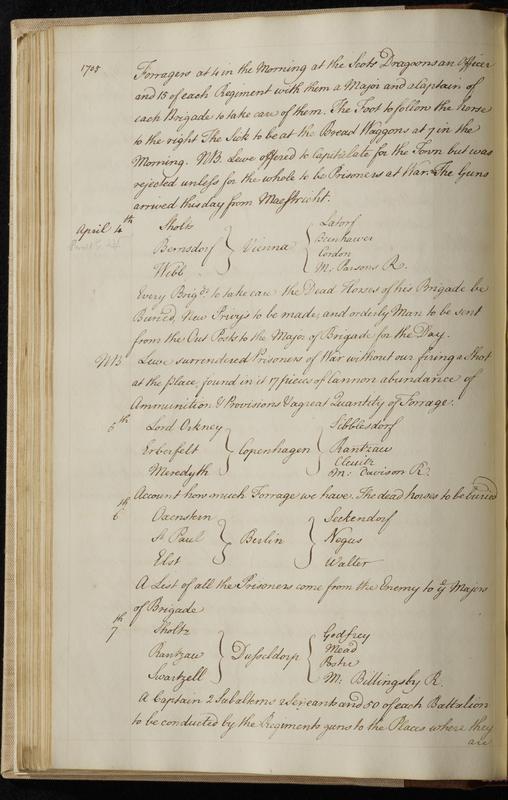 1705
Forragers at 4 in the Morning at the Scots Dragoons an Officer
and 15 of each Regiment with them a Major and a Captain of
each Brigade to take care of them. The Foot to follow the horse
to the right The Sick to be at the Bread Waggons at 7 in the
Morning. NB. Lewe offered to Capitulate for the Town but was
rejected unless for the whole to be Prisoners at War. The Guns
arrived this day from Maestricht.
April 4th Sholts Latorf
Bernsdorf Vienna Bunhawer
Webb Cordon
M: Parsons R.
Every Brigdr. to take care the Dead Horses of his Brigade be
Buried, New Privys to be made, and orderly Man to be sent
from the Out Posts to the Major of Brigade for the Day.
NB Lewe surrendered Prisoners of War without our fireing a Shot
at the place, found in it 17 pieces of Cannon abundance of
Ammunition & Provisions & a great Quantity of Forrage.
5th Lord Orkney Sibblesdorf
Erberfelt Copenhagen Rantzau
Meredyth Cleuitz
M: Davison R.
Account how much Forrage we have. The dead horses to be buried
6th Oxenstern Seckendorf
St Paul Berlin Negus
Elst Walter
A List of all the Prisoners come from the Enemy to ye Majors
of Brigade
7th Sholtz Godfrey
Rantzau Dusseldorp Mead
Swartzell Postre
M: Billingsby R.
A Captain 2 Subalterns 2 Serjeants and 50 of each Battalion
to be conducted by the Regiments guns to the Places where they
are